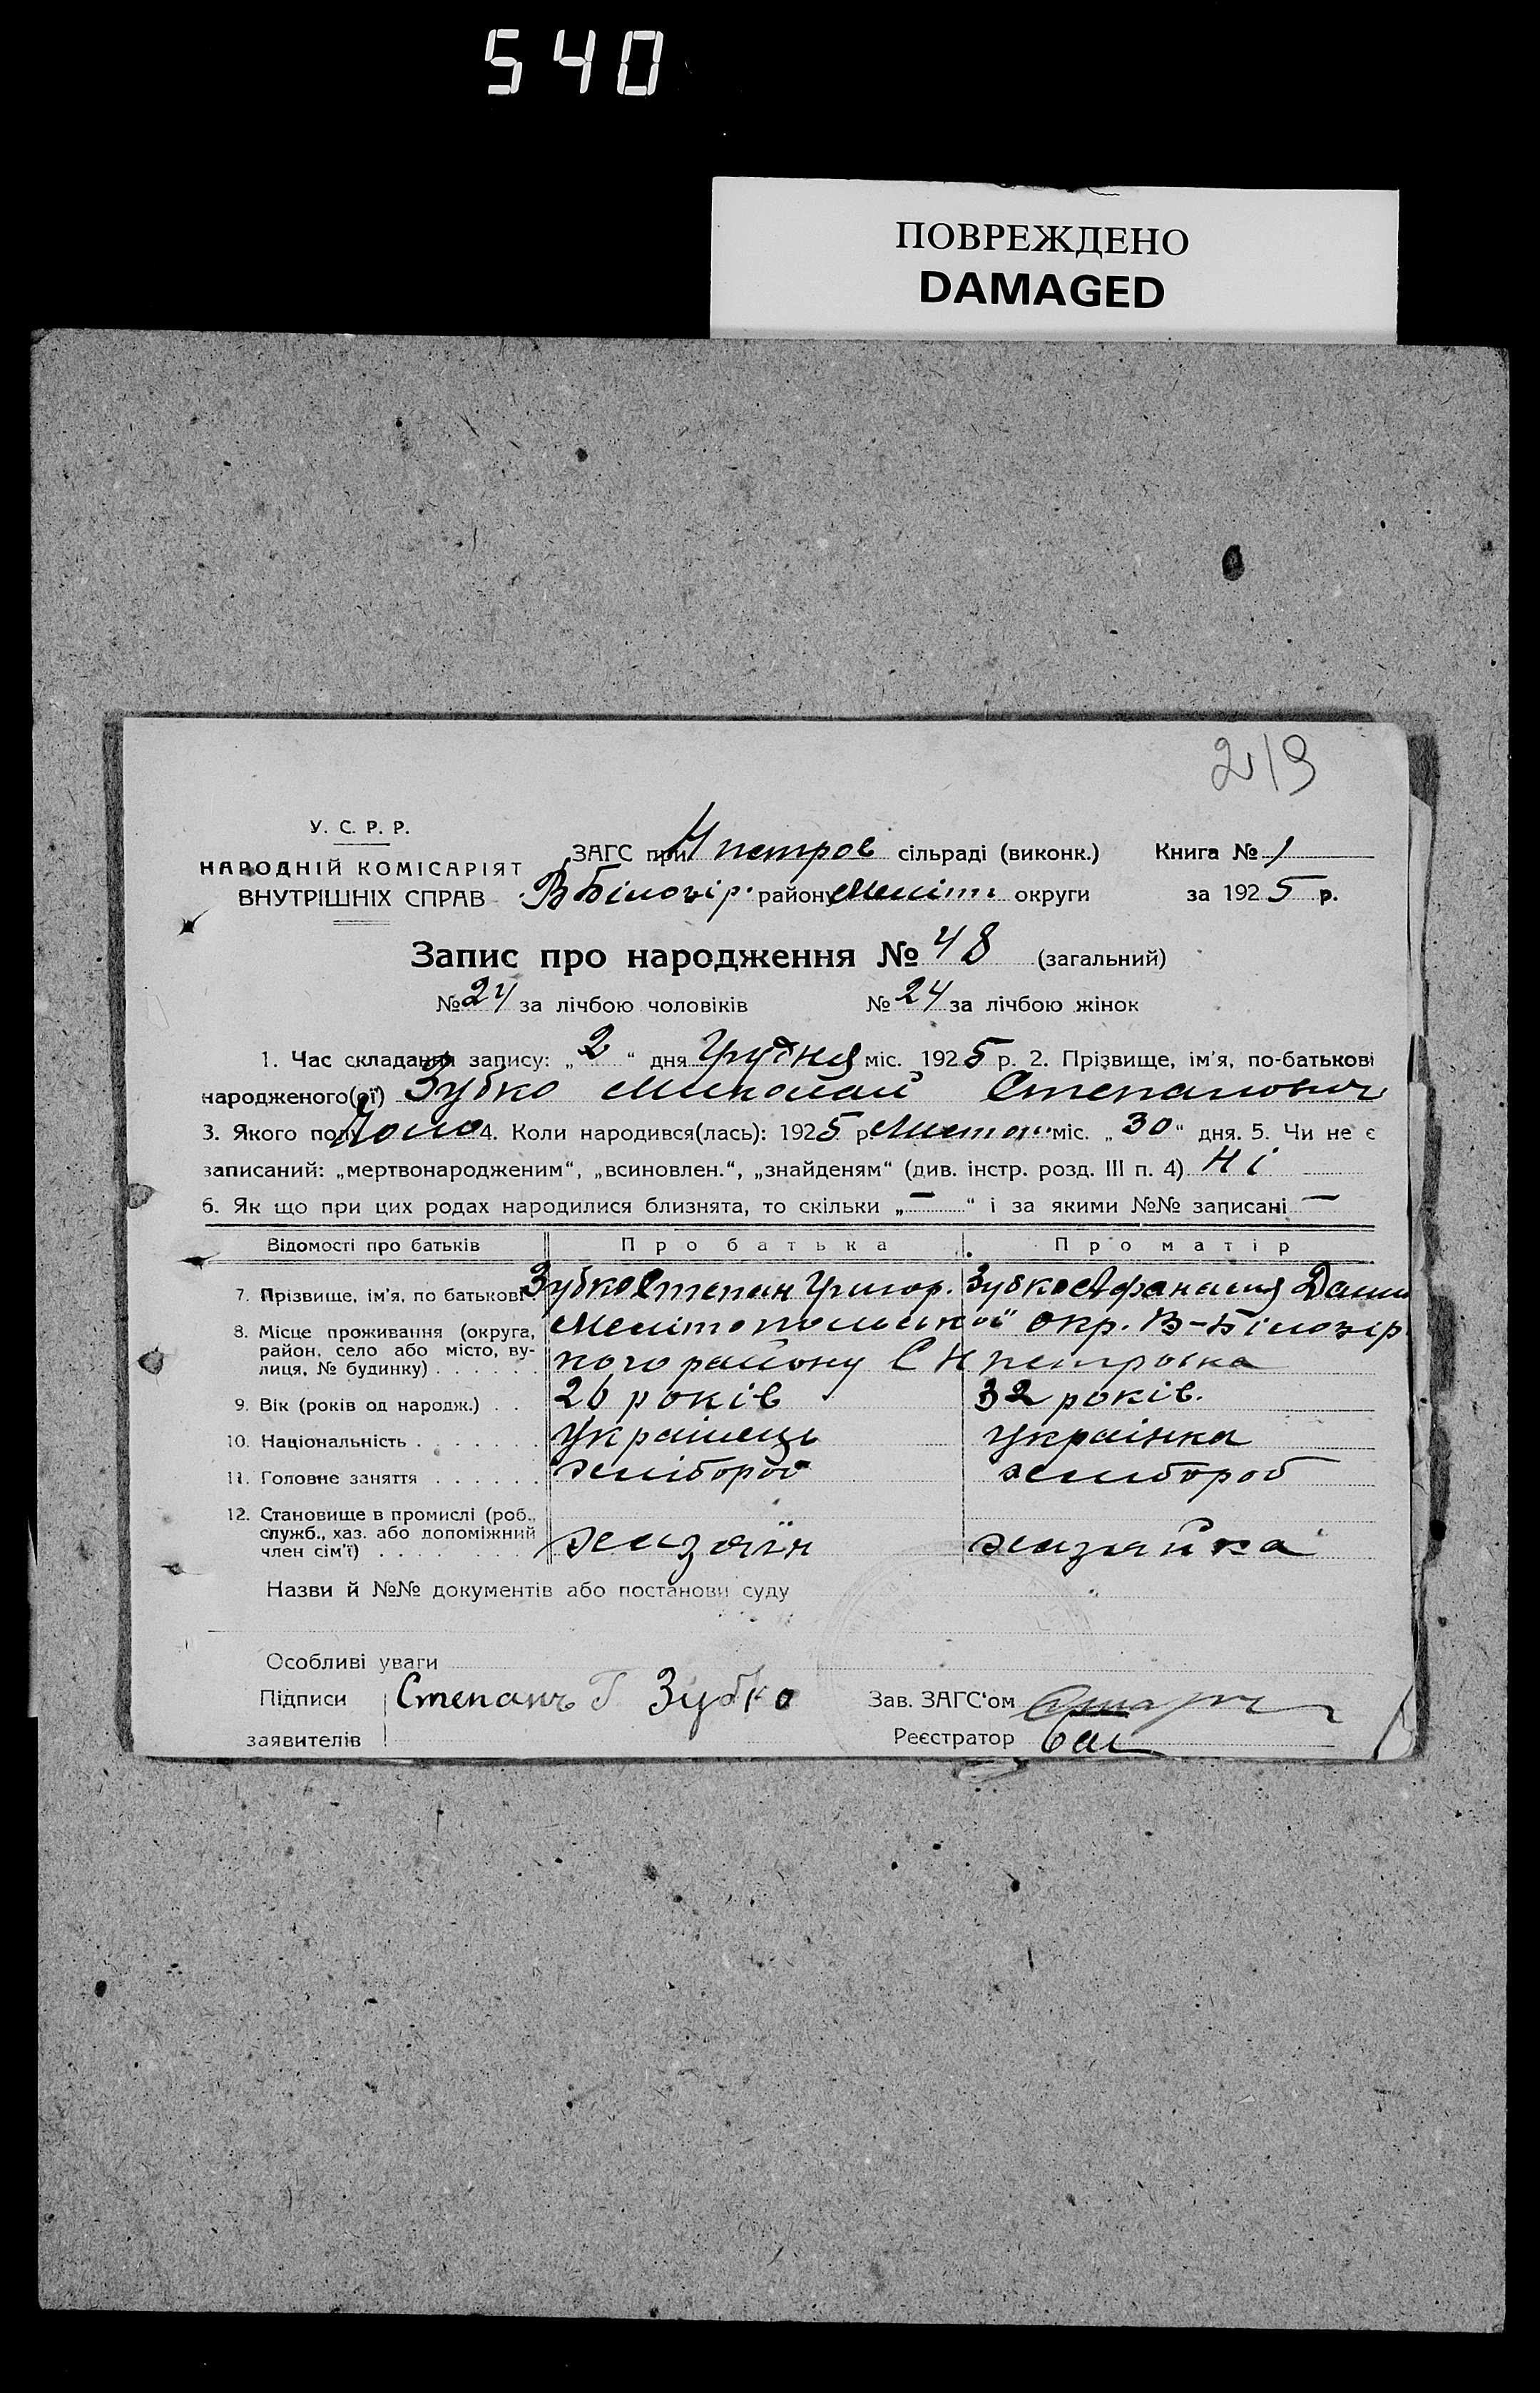 540
ПОВРЕЖДЕНО
DAMAGED
219
У. С. Р. Р.
НАРОДНІЙ КОМІСАРІЯТ
ВНУТРІШНІХ СПРАВ
ЗАГС при Н петров сільраді (виконк.)
В Білозір. району Меліт. округи
Книга № 1
за 1925 р.
Запис про народження № 48 (загальний)
№ 24 за лічбою чоловіків № 24 за лічбою жінок
1. Час складання запису: „2“ дня Грудня міс. 1925 р. 2. Прізвище, ім’я, по-батькові
народженого(ої) Зубко Миколай Степанович
3. Якого полу Чоло 4. Коли народився(лась): 1925 р. Листоп. міс. „30“ дня. 5. Чи не є
записаний: „мертвонародженим“, „всиновлен.“, „знайденям“ (див. інстр. розд. III п. 4) Ні
6. Як що при цих родах народилися близнята, то скільки „—“ і за якими №№ записані —
Відомості про батьків Про батька Про матір
7. Прізвище, ім’я, по батькові Зубко Степан Григор. Зубко Афанасия Данил
8. Місце проживання (округа, район, село або місто, вулиця, № будинку) . . . . . . Мелітопольської окр. В-Білозір
кого району С Н петровка
9. Вік (років од народж.) . . 26 років 32 років.
10. Національність . . . . . . . Українець Українка
11. Головне заняття . . . . . . хлібороб хлібороб
12. Становище в промислі (роб.,
служб., хаз. або допоміжний
член сім’ї) . . . . . . . . хазяїн хазяйка
Назви й №№ документів або постанови суду
Особливі уваги
Підписи заявителів Степанъ Г Зубко
Зав. ЗАГС‘ом
Реєстратор